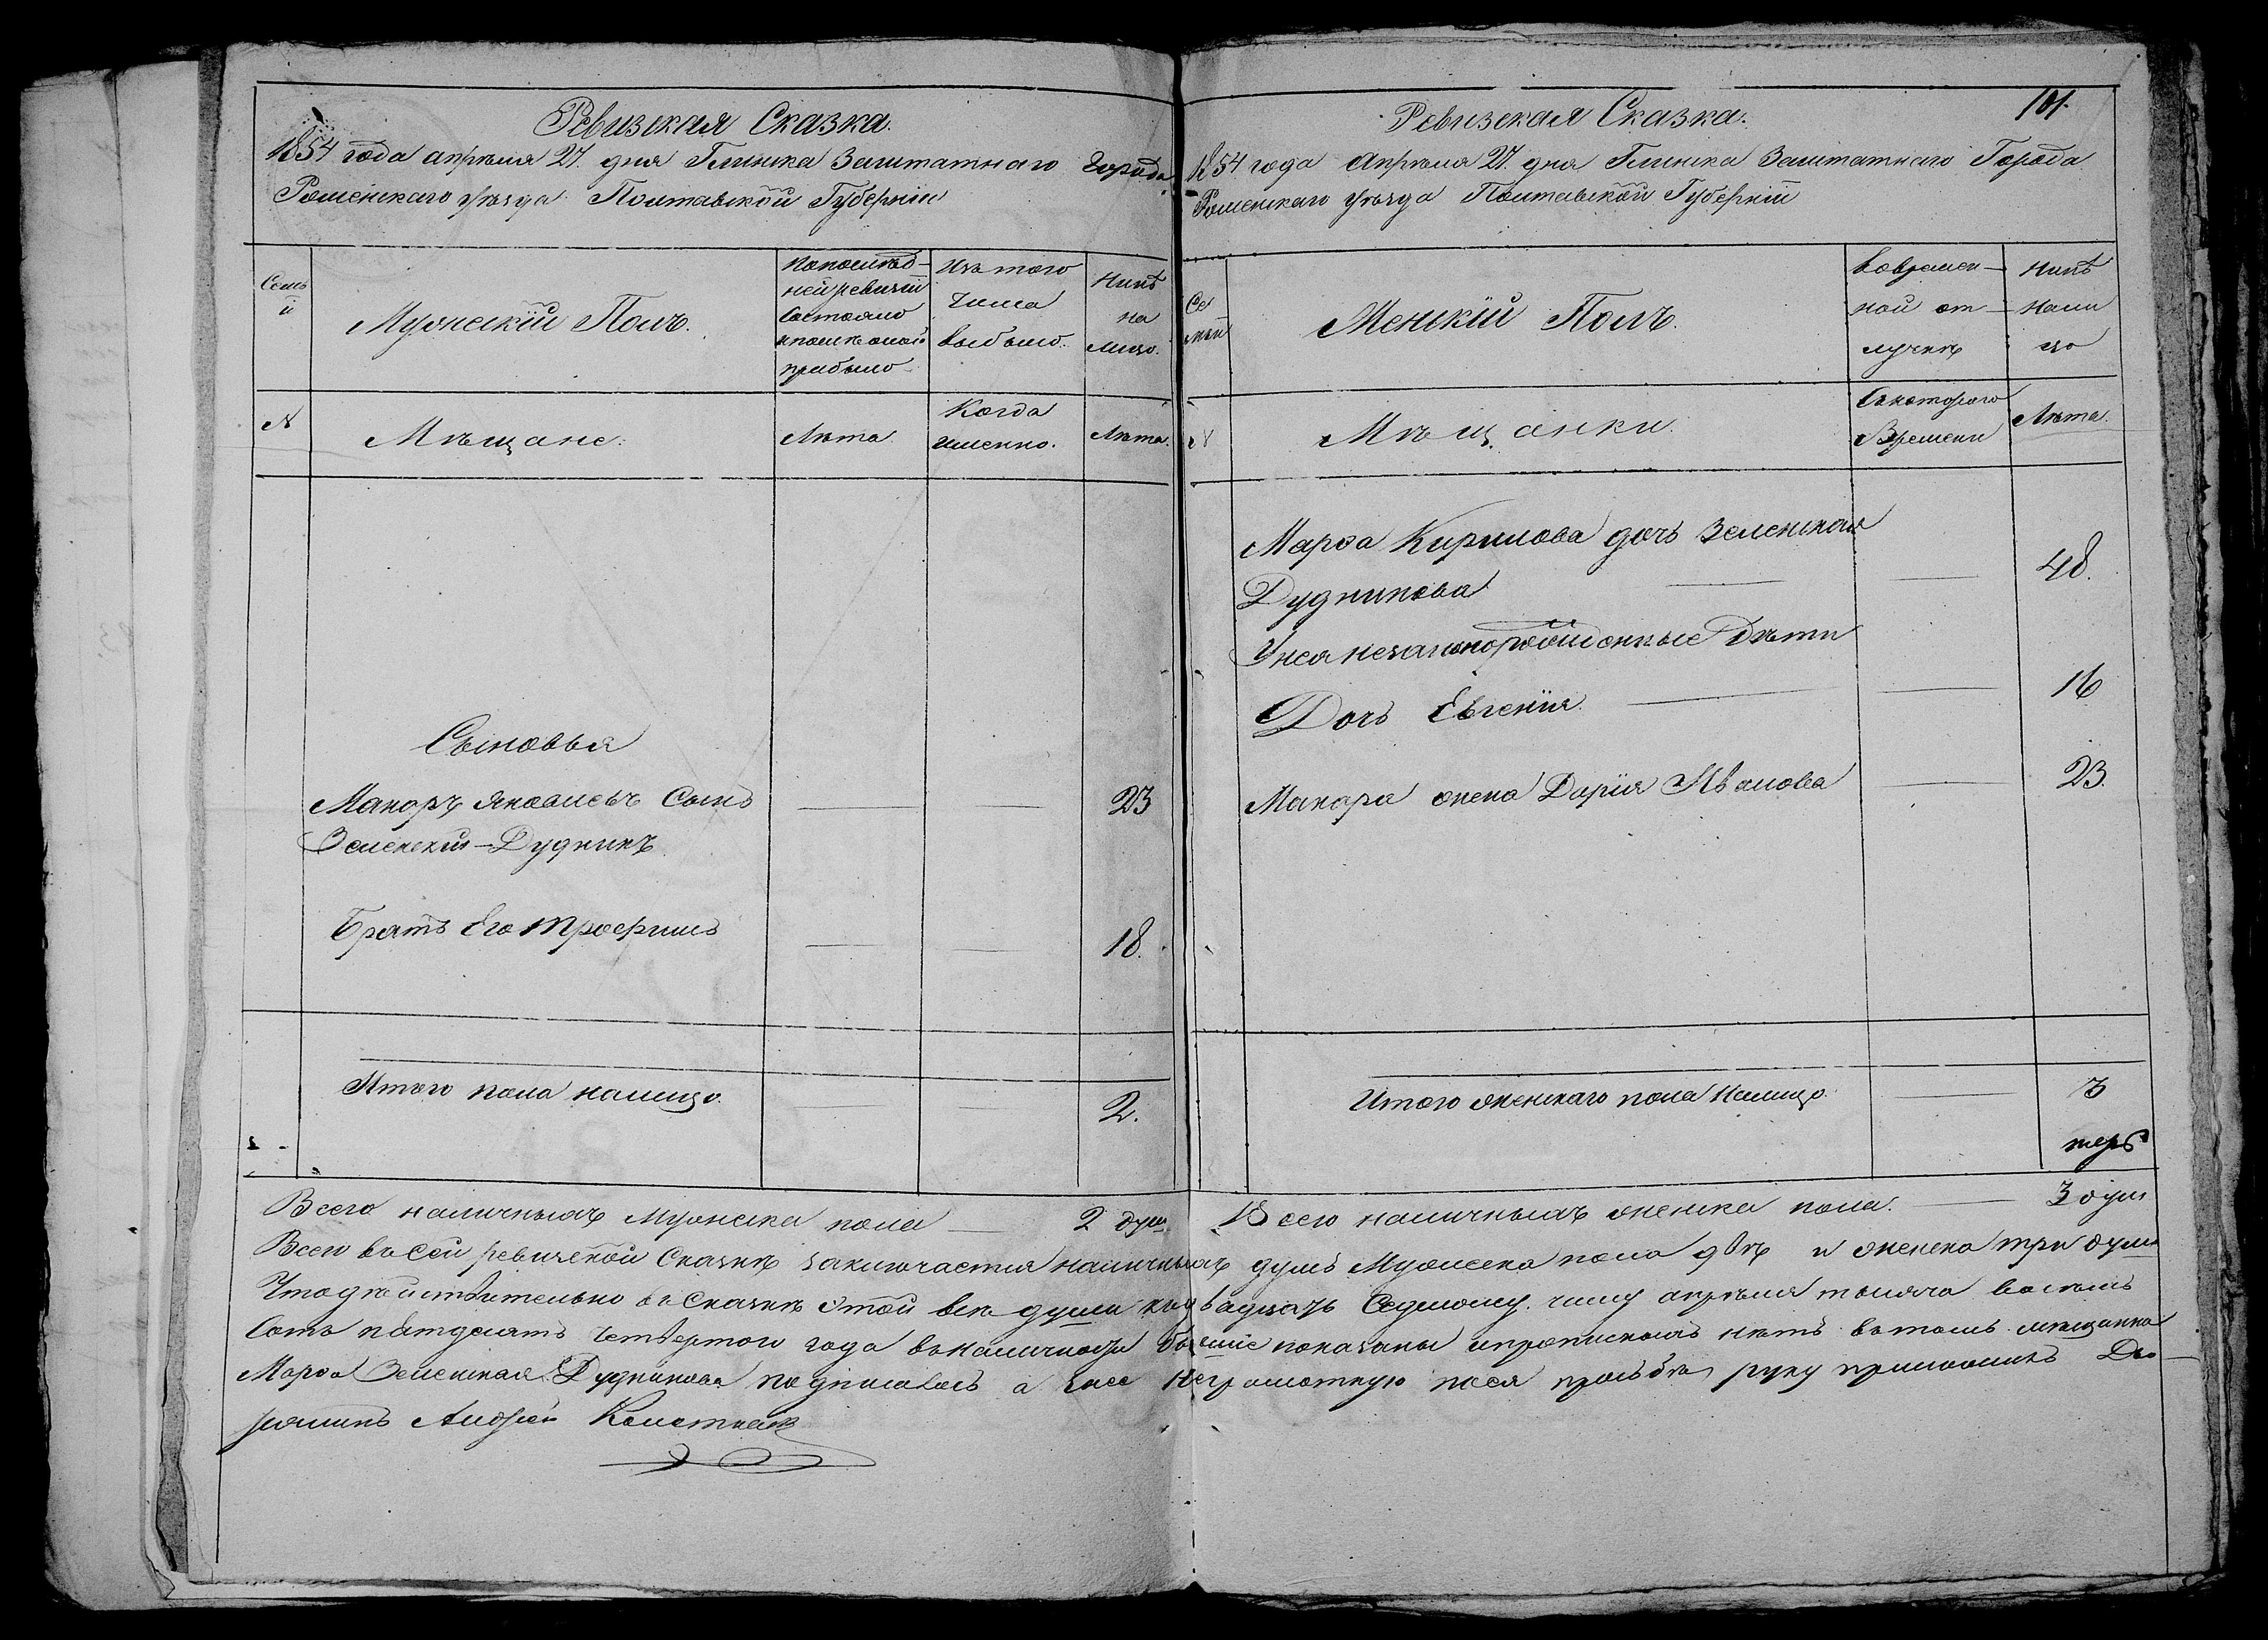 Ревизская Сказка.
1854 года апрѣля 27. дня Глинска Заштатнаго Города
Роменскаго уѣзда Полтавской Губерніи
Семьи
Мужескій Полъ.
По послѣд-
ней ревизіи
состояло
и послѣ оной
прибыло
Изъ того
числа
выбыло.
Нинѣ
на
лицо.
№
Мѣщане.
Лѣта
Когда
именно.
Лѣта.
Сыновья
Макаръ Яковлевъ Сынъ
23
Зеленскій-Дудникъ
Братъ Его Трофимъ
18.
Итого пола налицо.
2.
Всего наличныхъ Мужеска пола 2 душ
Ревизская Сказка.
101.
1854 года Апрѣля 27. дня Глинска Заштатнаго Города
Роменскаго уѣзда Полтавской Губерніи
Се
мьи
Женскій Полъ.
Во времен-
ной от-
лучкѣ
Нинѣ
нали
цо
№
Мѣщанки.
Съ котораго
Времени
Лѣта.
Марфа Кирилова дочь Зеленская
Дудникова
48.
У нея незаконорожденные Дѣти
Дочь Евгенія.
16
Макара жена Дарія Иванова
23.
Итого женскаго пола Налицо.
3
Всего наличныхъ женска пола. 3 душ
Всего въ Сей ревизской Сказкѣ заключается наличныхъ душъ Мужеска пола двѣ и женска три души
Что дѣйствительно въ Сказкѣ этой всѣ души къ двадцать Седмому числу апрѣля тысяча восемь
сотъ пятдесятъ четвертого года въ наличности бывшіе показаны и прописныхъ нѣтъ въ томъ мѣщанка
Марфа Зеленская Дудникова подписалась а вмѣсто неграмотную по ея прозьбѣ руку приложилъ Дво-
рянинъ Андрей